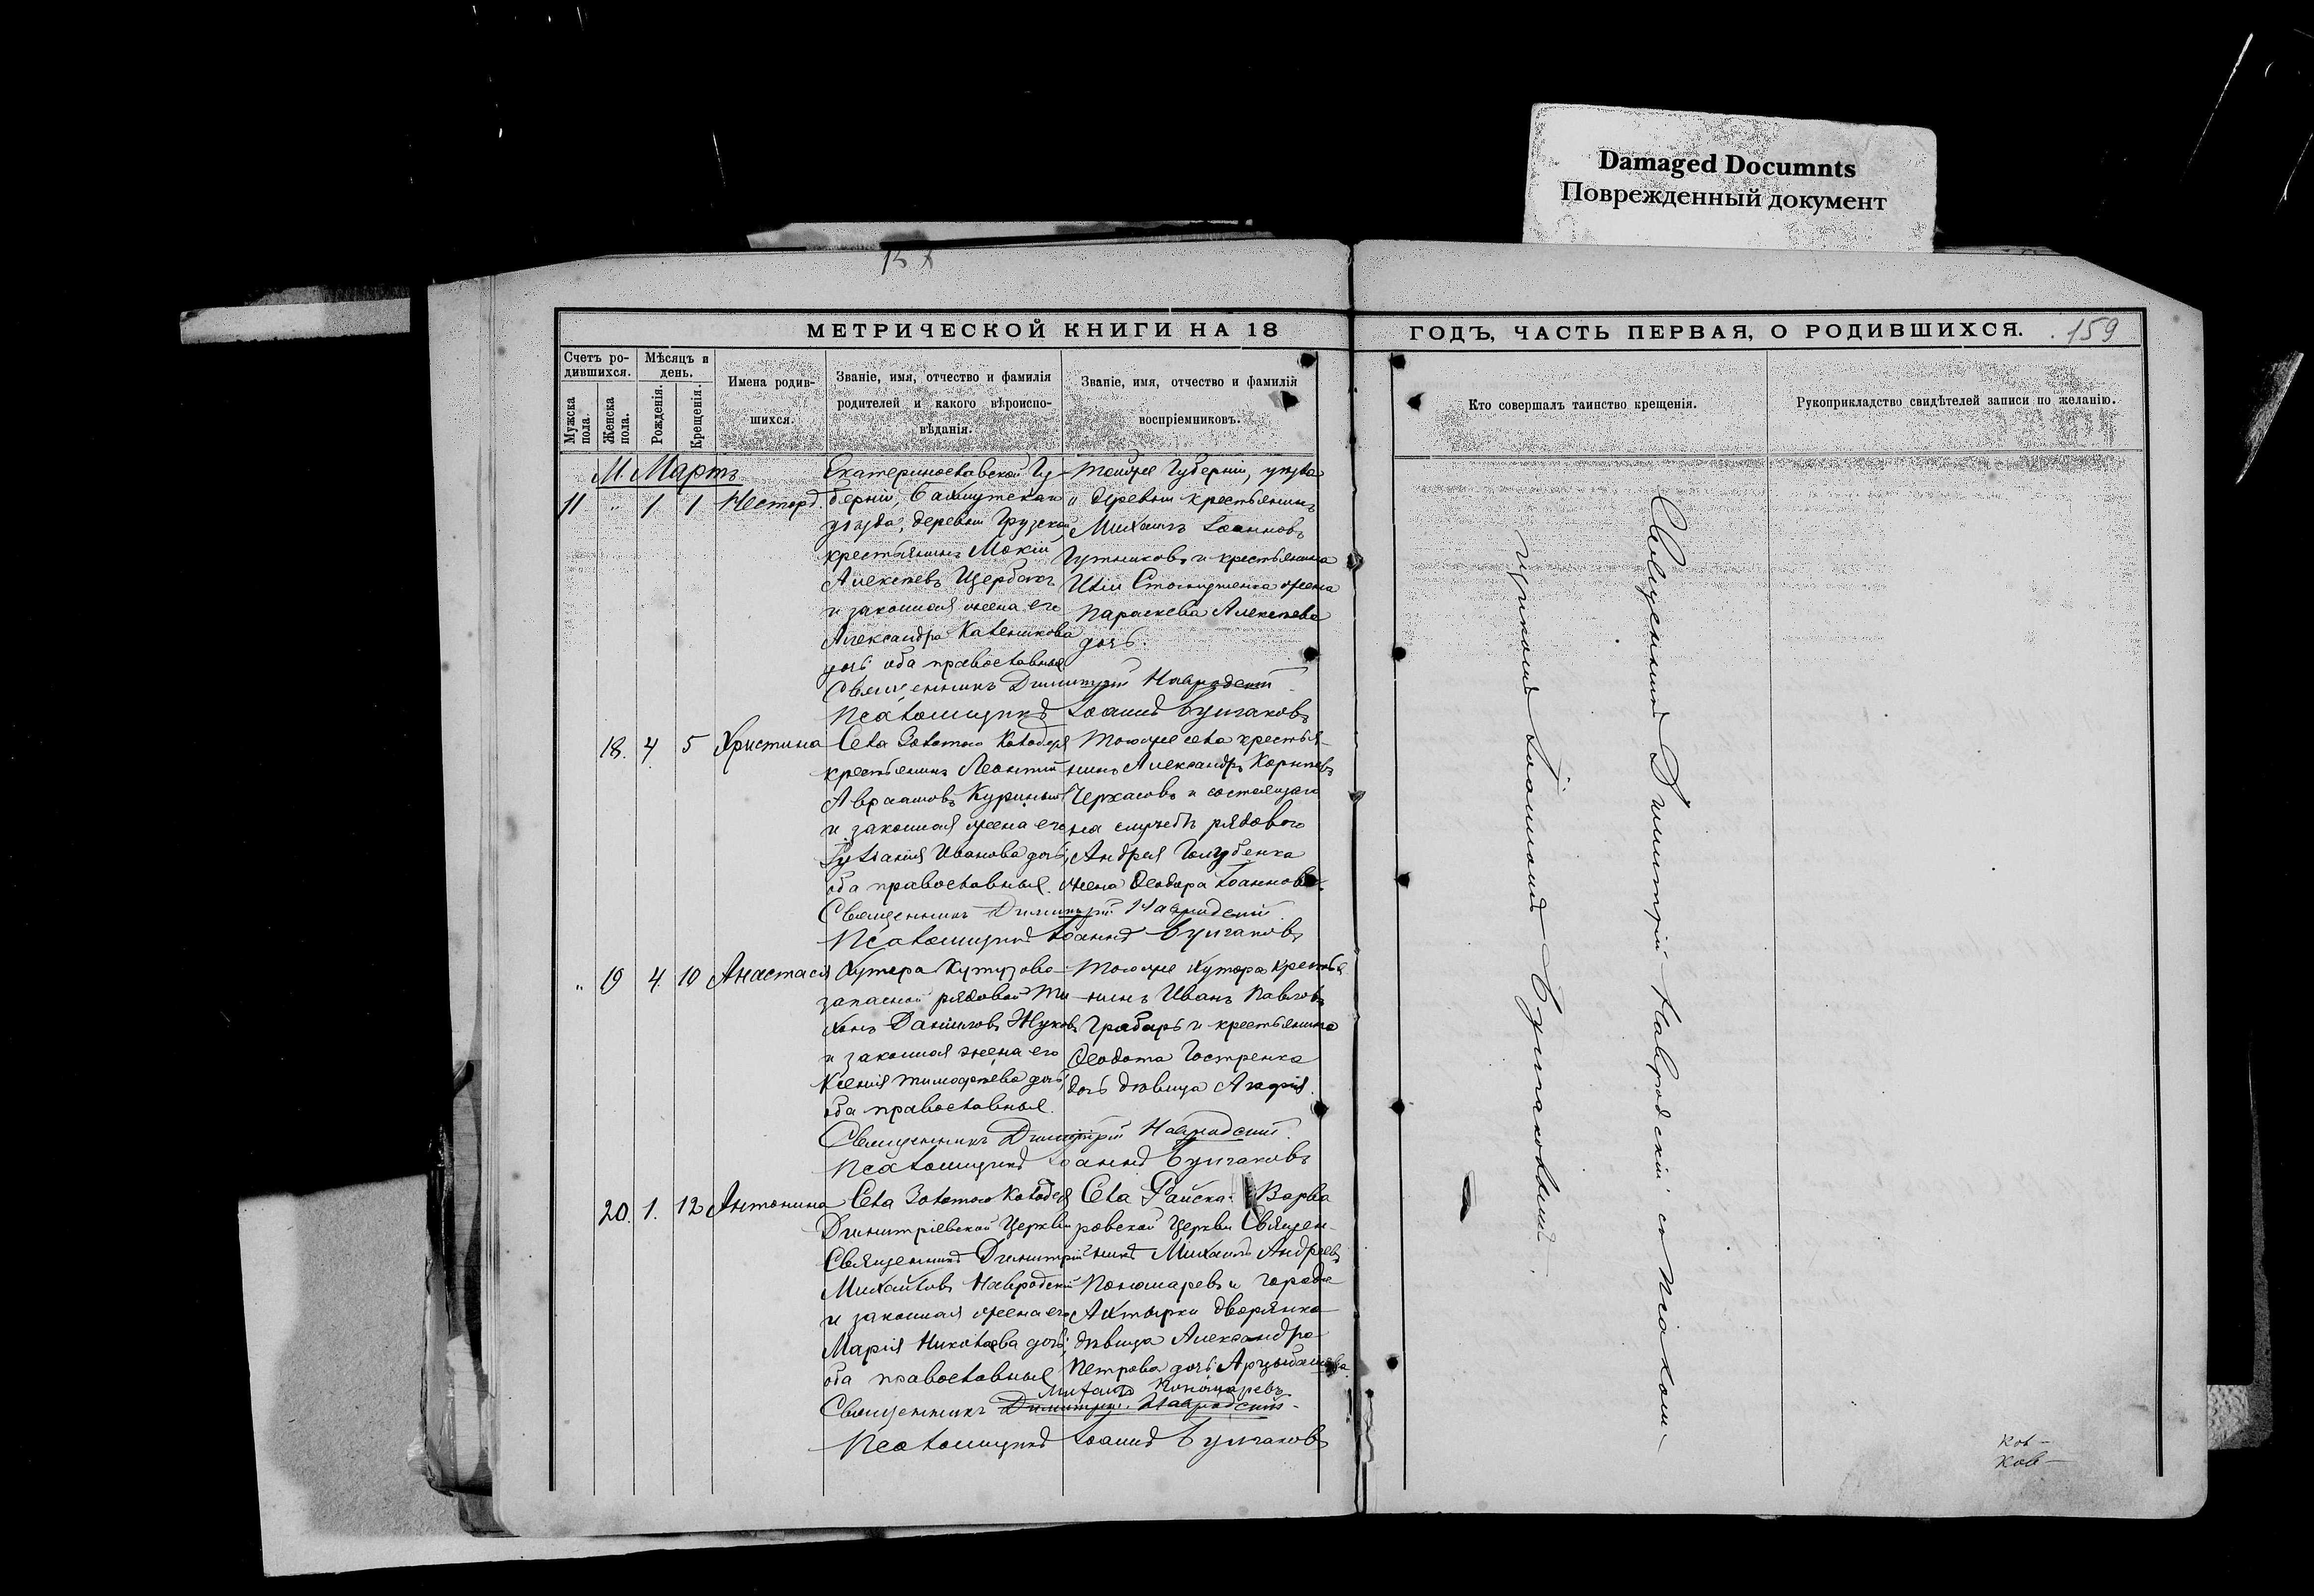 Damaged Documnts
Поврежденный документ
МЕТРИЧЕСКОЙ КНИГИ НА 18
ГОДЪ, ЧАСТЬ ПЕРВАЯ, О РОДИВШИХСЯ.
159
Счетъ ро-
дившихся.
Мѣсяцъ и
день.
Мужска
пола.
Женска
пола.
Рожденія.
Крещенія.
Имена родив-
шихся.
Званіе, имя, отчество и фамилія
родителей и какого вѣроиспо-
вѣданія.
Званіе, имя, отчество и фамилія
воспріемниковъ.
Кто совершалъ таинство крещенія.
Рукоприкладство свидѣтелей записи по желанію.
М. Мартъ
11 " 1 1 Несторъ
Екатеринославской Гу-
берніи, Бахмутскаго
уѣзда, деревни Грузской
крестьянинъ Мокій
Алексѣевъ Щербакъ
и законная жена его
Александра
дочь оба православные
Тойже Губерніи, уѣзда
и деревни крестьянинъ
Михаилъ Іоанновъ
и крестьянина
жена
Параскева Алексѣева
дочь.
Священникъ Димитрій Навродскій
Псаломщикъ Іоаннъ Булгаковъ
18. 4 5 Христина
Села Золотого Колодезя
крестьянинъ Леонтій
Авраамовъ
и законная жена его
Иванова дочь,
оба православные.
Тогоже села крестья-
нинъ Александръ Корнѣевъ
Черкасовъ и состоящаго
на службѣ рядового
Андрея Голубенка
жена Ѳеодора Іоаннова.
Священникъ Димитрій Навродскій
Псаломщикъ Іоаннъ Булгаковъ
" 19 4 10 Анастасія
Хутора Кутузово
запасной рядовой Ти-
хонъ Даниловъ Жуковъ
и законная жена его
Ксенія Тимофѣева дочь,
оба православные.
Тогоже Хутора крестья
нинъ Иванъ Павловъ
Грабарь и крестьянина
Ѳеодота Гостренка
дочь дѣвица Агафія.
Священникъ Димитрій Навродскій
Псаломщикъ Іоаннъ Булгаковъ
20. 1. 12 Антонина
Села Золотого Колодезя
Димитріевской Церкви
Священникъ Димитрій
Михайловъ Навродскій
и законная жена его
Марія Николаева дочь,
оба православные
Села Райска Варва
ровской Церкви Священ-
никъ Михаилъ Андреевъ
Пономаревъ и города
Ахтырки дворянка
дѣвица Александра
Петрова дочь
Михаилъ Пономаревъ
Священникъ Димитрій Навродскій
Псаломщикъ Іоаннъ Булгаковъ
Священникъ Димитрій Навродскій съ псалом-
щикомъ Іоанномъ Булгаковымъ.